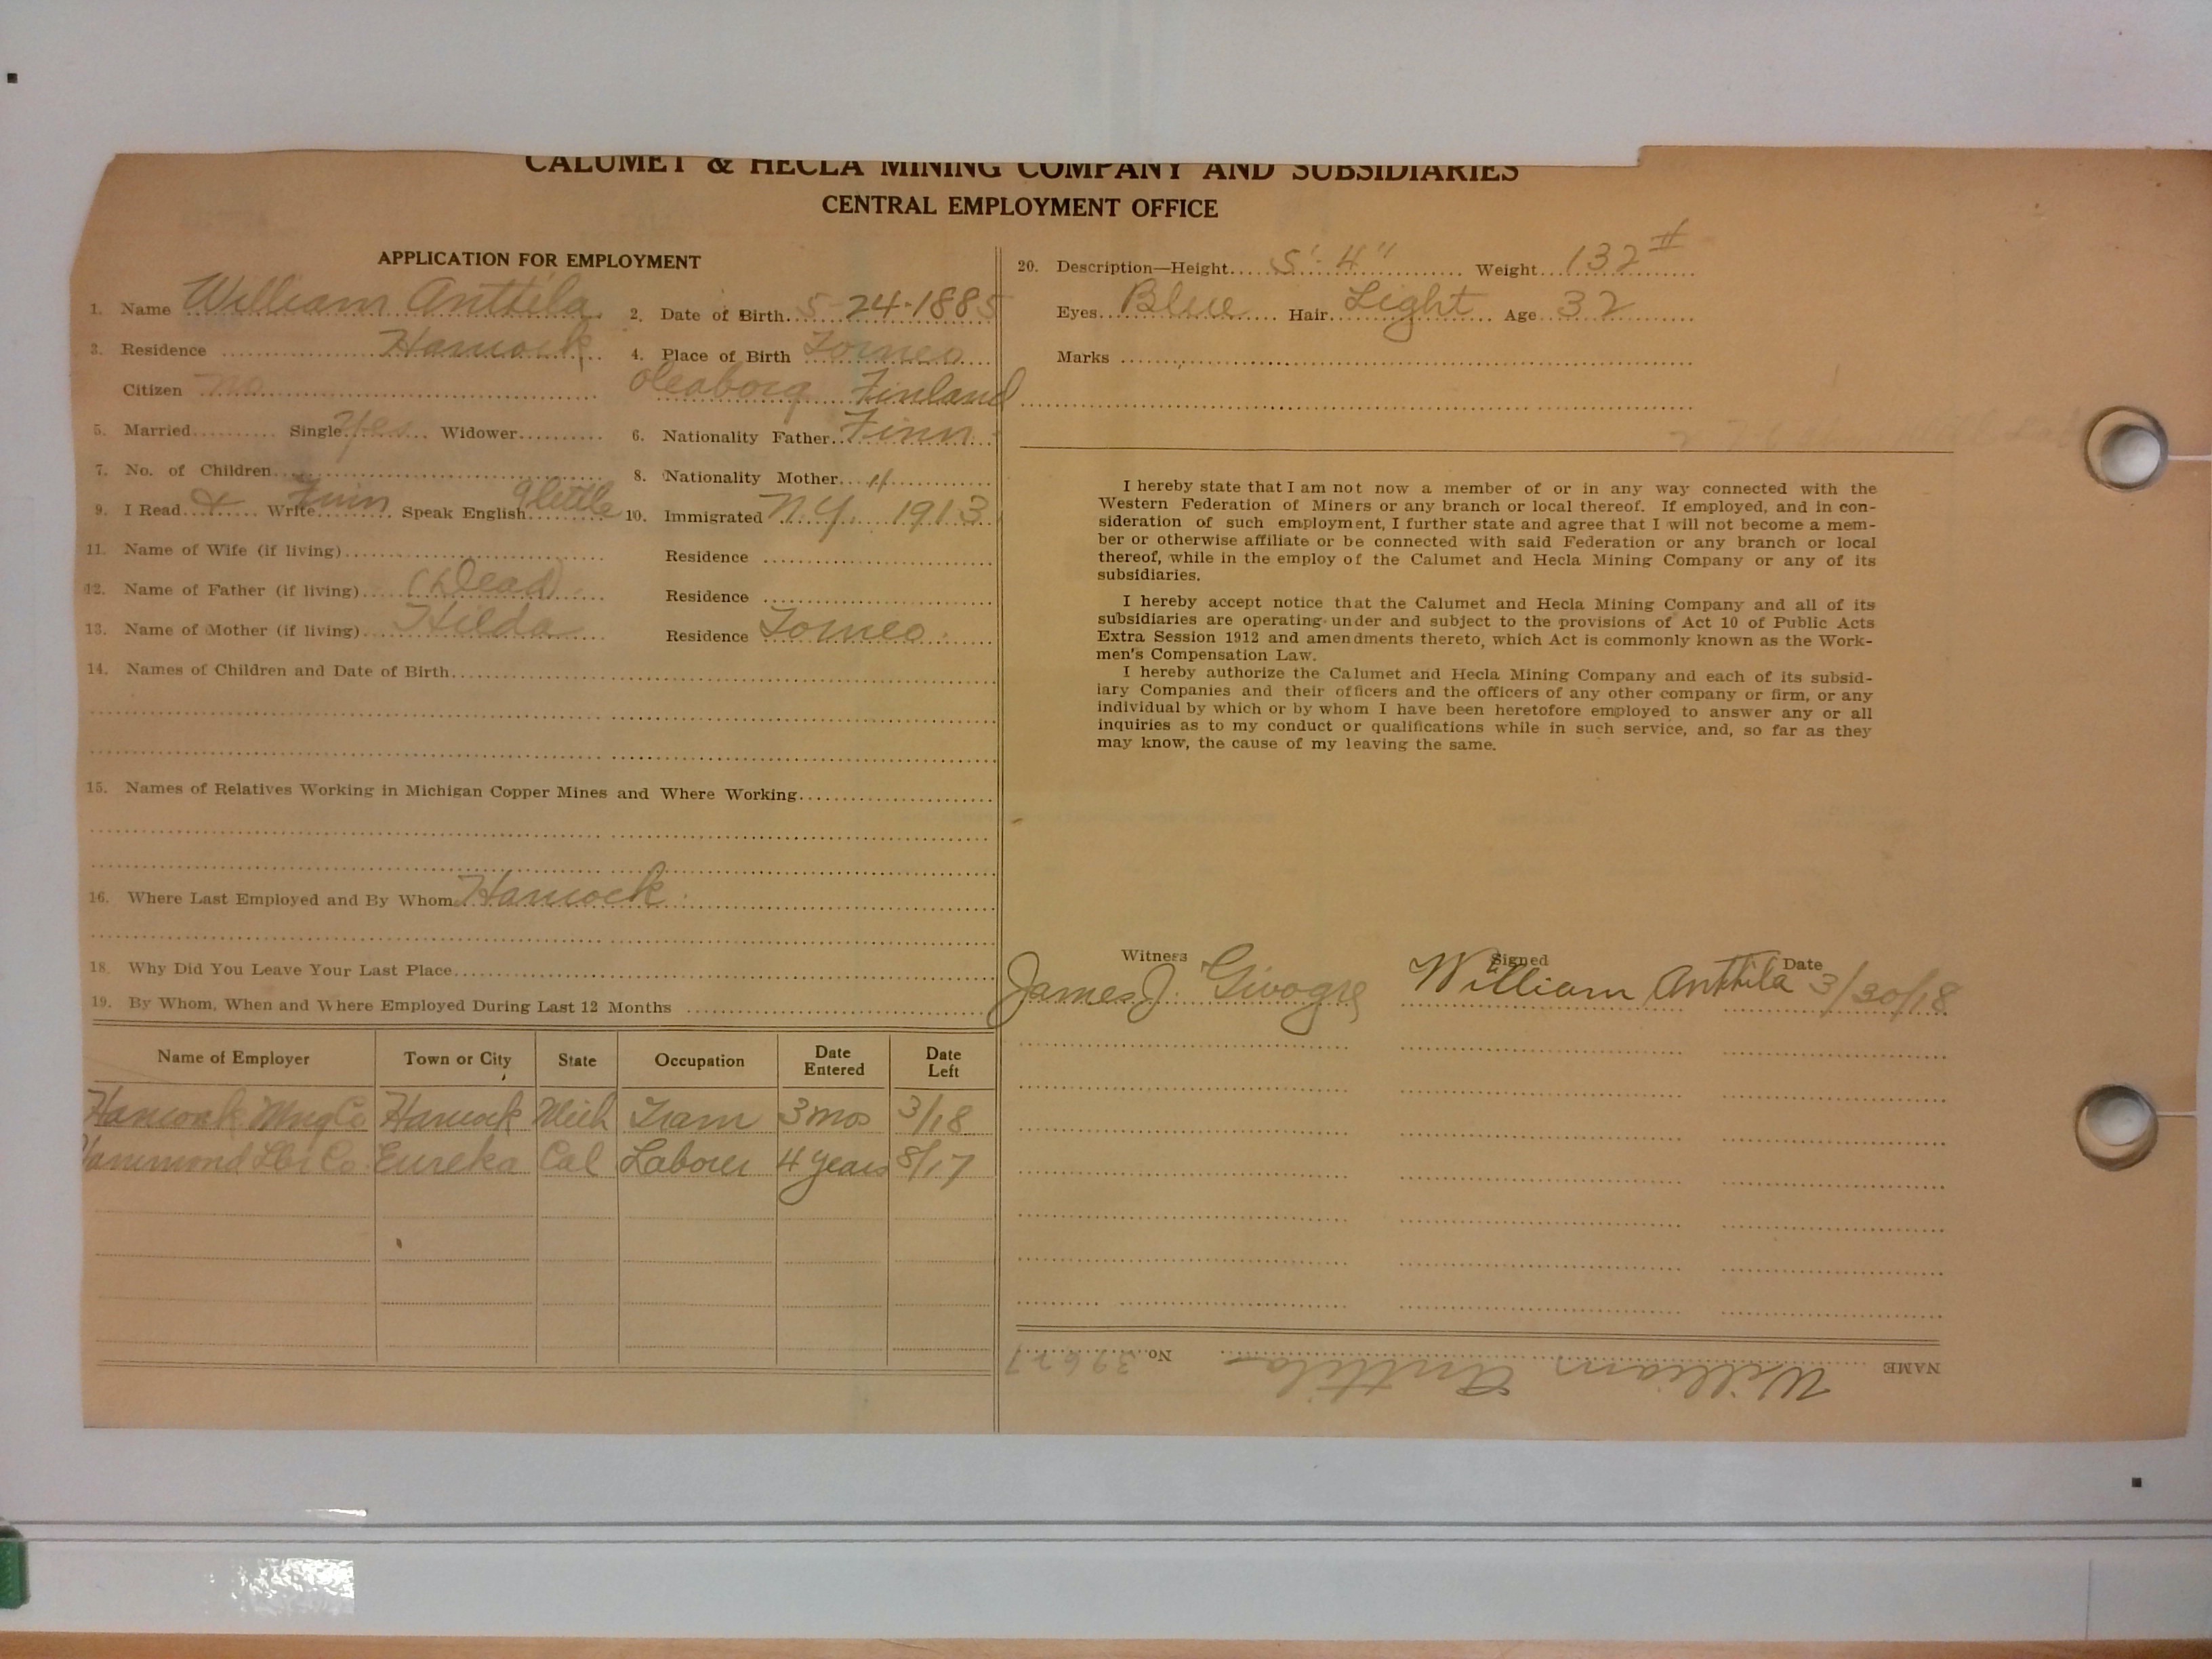 CALUMET & HECLA MINING COMPANY AND SUBSIDIARIES
CENTRAL EMPLOYMENT OFFICE
APPLICATION FOR EMPLOYMENT
1. Name William Anttila. 2. Date of Birth 5-24-1885
3. Residence Hancock 4. Place of Birth Torneo
Citizen no Oleaborg Finland
5. Married Single Yes Widower 6. Nationality Father Finn
7. No. of Children 8. Nationality Mother "
9. I Read & Write Finn Speak English little 10. Immigrated N.Y. 1913
11. Name of Wife (if living) Residence
12. Name of Father (if living) (Dead) Residence
13. Name of Mother (if living) Hilda Residence Torneo.
14. Names of Children and Date of Birth
15. Names of Relatives Working in Michigan Copper Mines and Where Working
16. Where Last Employed and By Whom Hancock
18. Why Did You Leave Your Last Place
19. By Whom, When and Where Employed During Last 12 Months
Name of Employer Town or City State Occupation Date Entered Date Left
Hancock Mng Co Hancock Mich Tram 3 mos 3/18
Hammond Lbr Co. Eureka Cal Laborer 4 years 8/17
20. Description—Height 5'-4" Weight 132 #
Eyes Blue Hair Light Age 32
Marks
I hereby state that I am not now a member of or in any way connected with the
Western Federation of Miners or any branch or local thereof. If employed, and in con-
sideration of such employment, I further state and agree that I will not become a mem-
ber or otherwise affiliate or be connected with said Federation or any branch or local
thereof, while in the employ of the Calumet and Hecla Mining Company or any of its
subsidiaries.
I hereby accept notice that the Calumet and Hecla Mining Company and all of its
subsidiaries are operating under and subject to the provisions of Act 10 of Public Acts
Extra Session 1912 and amendments thereto, which Act is commonly known as the Work-
men's Compensation Law.
I hereby authorize the Calumet and Hecla Mining Company and each of its subsid-
iary Companies and their officers and the officers of any other company or firm, or any
individual by which or by whom I have been heretofore employed to answer any or all
inquiries as to my conduct or qualifications while in such service, and, so far as they
may know, the cause of my leaving the same.
Witness Signed Date
James J. William Anttila 3/30/18
NAME William Anttila No. 39627